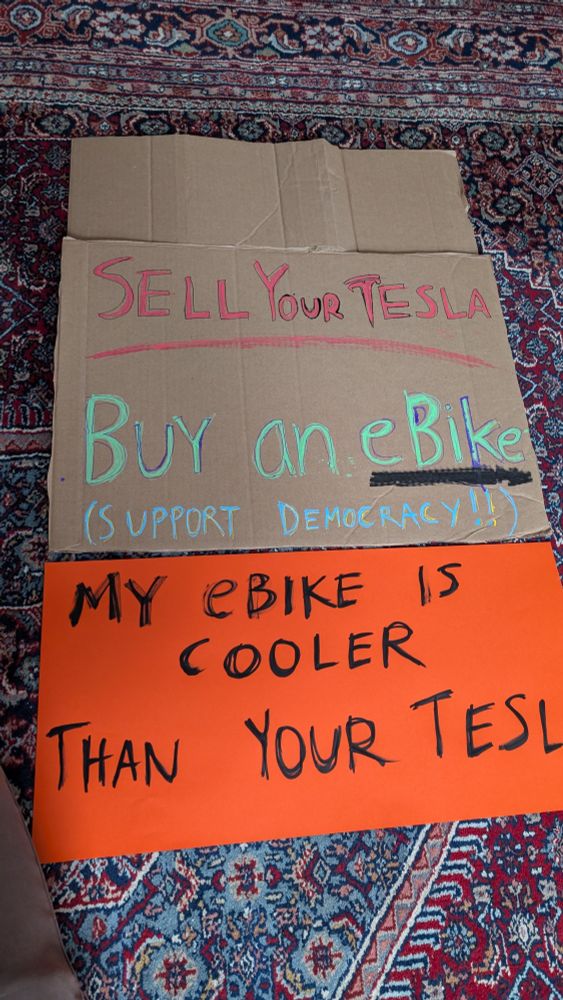 SELL YOUR TESLA
BUY an eBike
(SUPPORT DEMOCRACY!!)
MY eBIKE IS
COOLER
THAN YOUR TESL